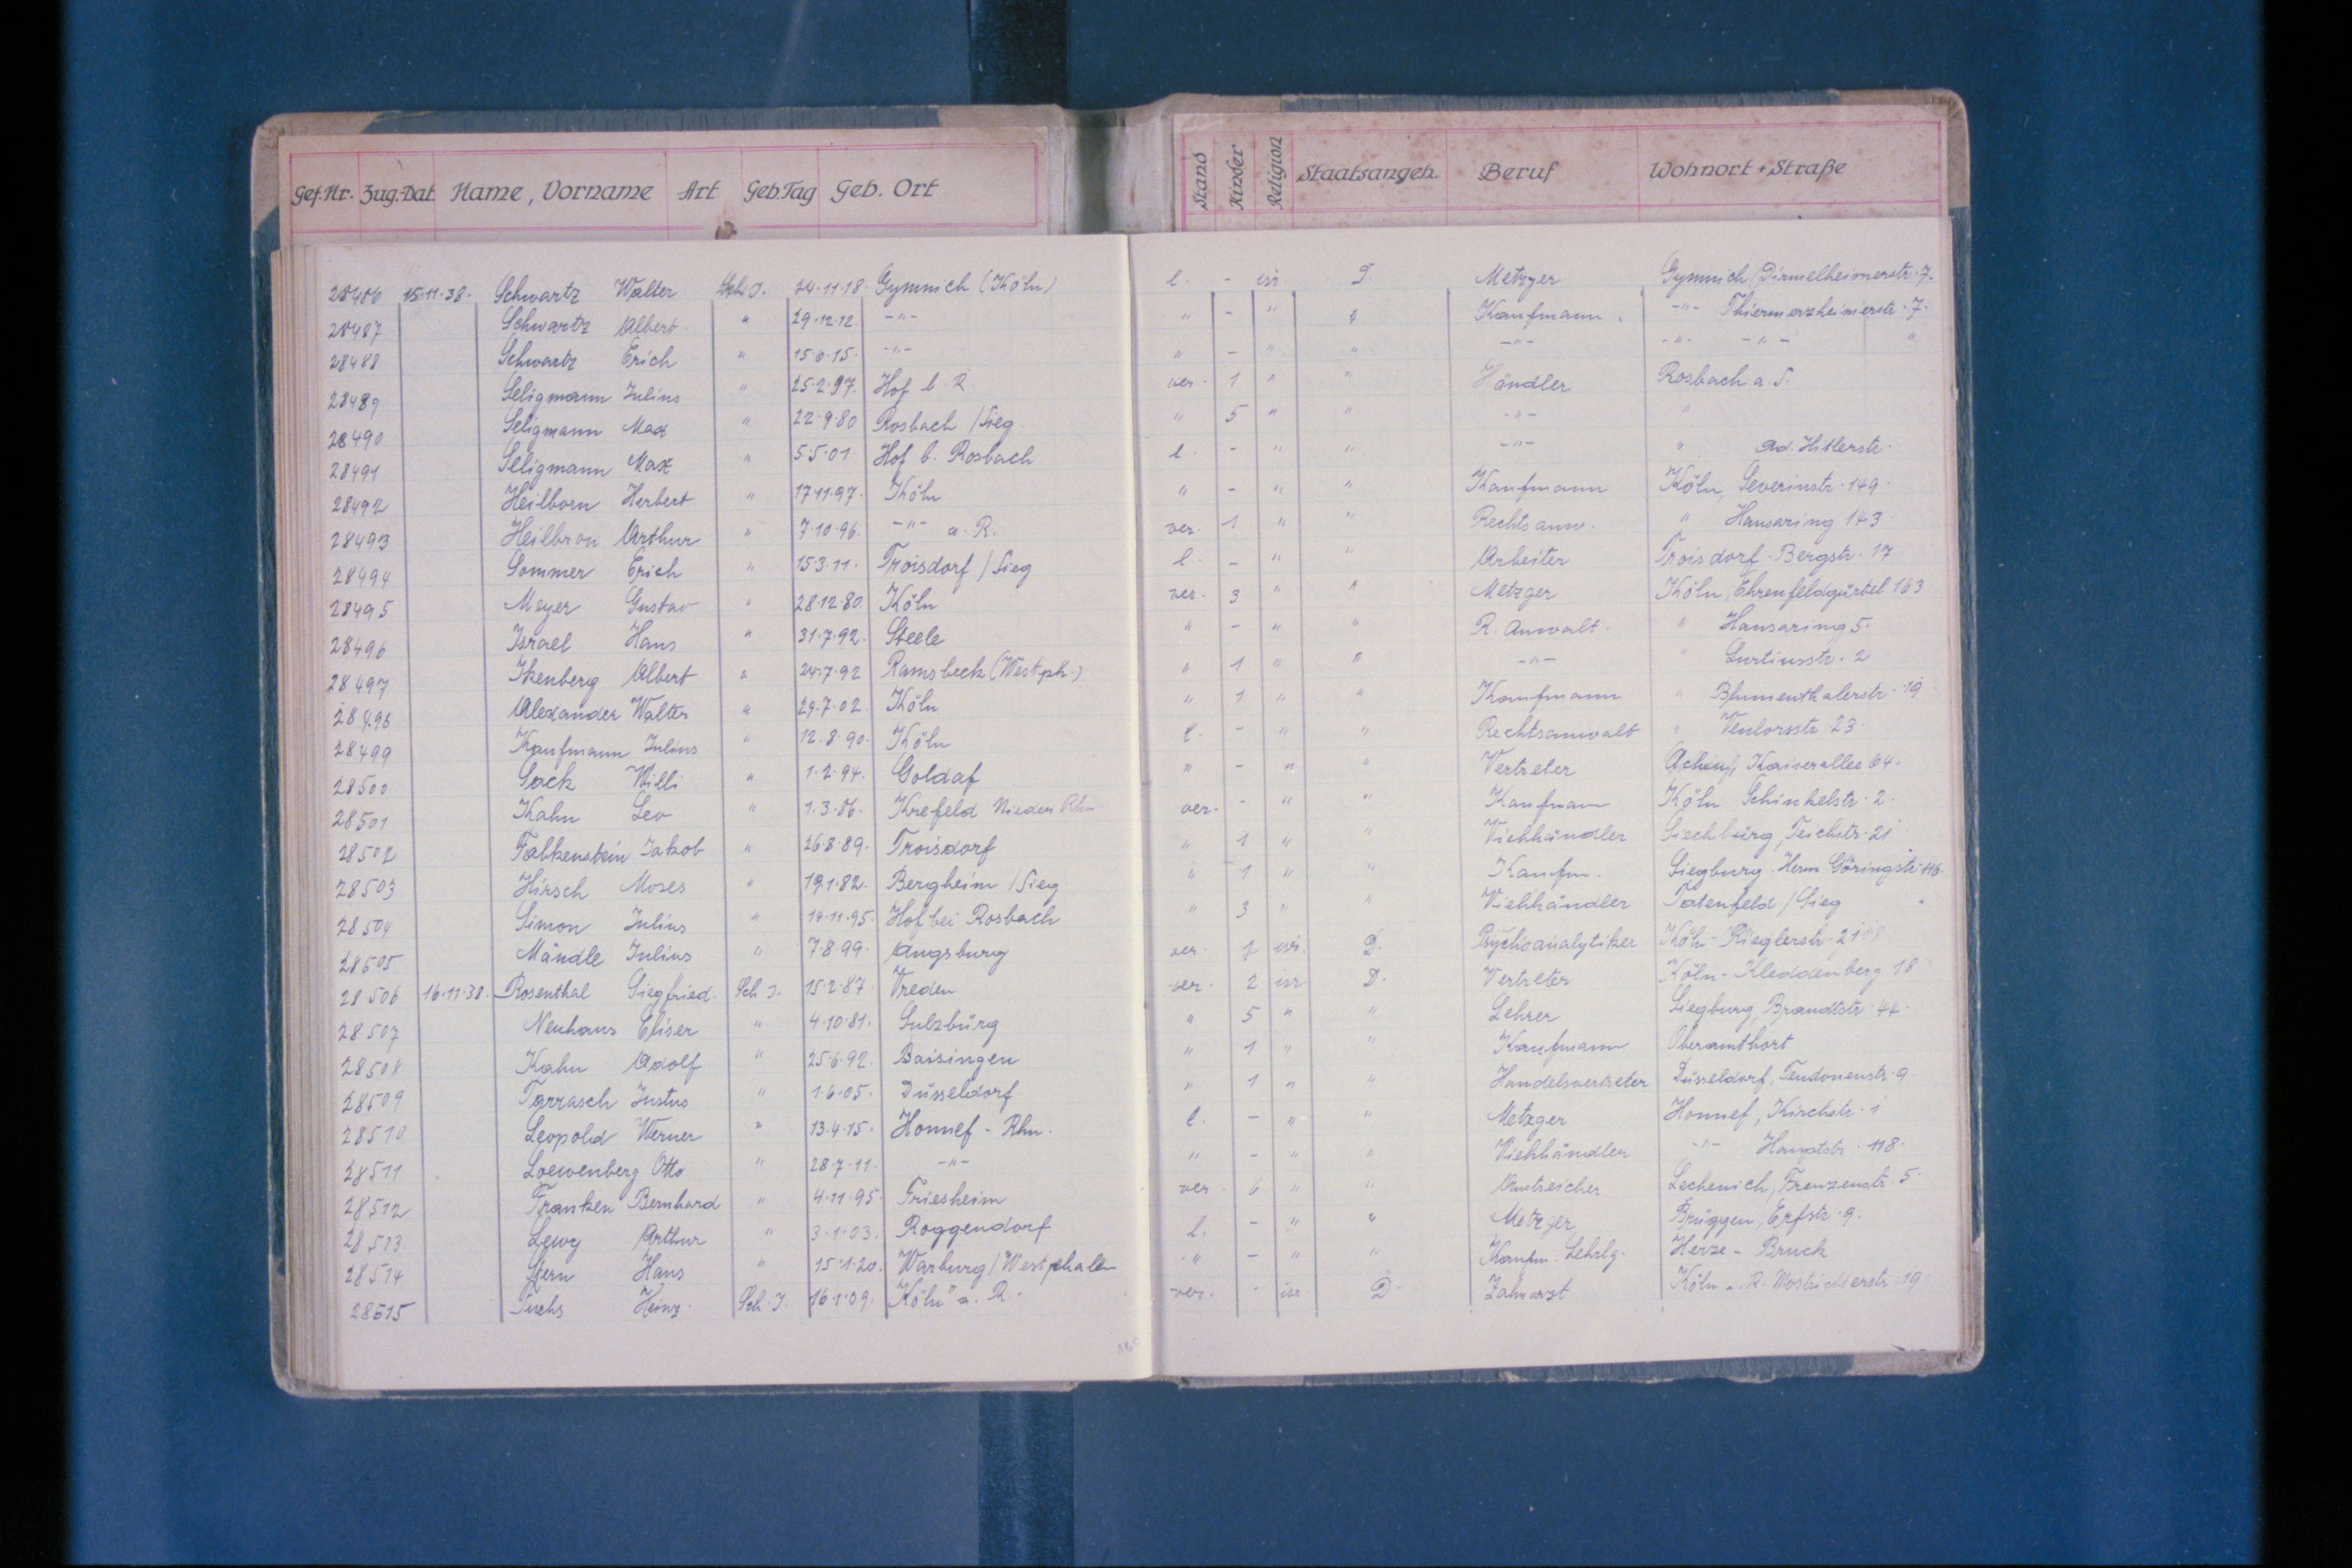 Gef.Nr. Zug.Dat. Name, Vorname Art Geb.Tag Geb. Ort Stand Kinder Religion Staatsangeh. Beruf Wohnort + Straße
28486 15.11.38. Schwartz Walter Sch.J. 24.11.18. Gymnich (Köln) l. - isr D. Metzger Gymnich/Dirmelheimerstr. 7.
28487 Schwartz Albert " 29.12.12. -"- " - " " Kaufmann. -"- Thiermerzheimerstr. 7.
28488 Schwartz Erich " 15.6.15. -"- " - " " -"- -"- -"- "
28489 Seligmann Julius " 25.2.97. Hof b. R. ver. 1 " " Händler Rosbach a. S.
28490 Seligmann Max " 22.9.80 Rosbach /Sieg " 5 " " -"- "
28491 Seligmann Max " 5.5.01 Hof b. Rosbach l. - " " -"- " Ad. Hitlerstr.
28492 Heilborn Herbert " 17.11.97. Köln " - " " Kaufmann Köln, Severinstr. 149.
28493 Heilbron Arthur " 7.10.96. -"- a. R. ver. 1 " " Rechtsanw. " Hansaring 143
28494 Sommer Erich " 15.3.11. Troisdorf /Sieg l. - " " Arbeiter Troisdorf-Bergstr. 17
28495 Meyer Gustav " 28.12.80. Köln ver. 3 " " Metzger Köln, Ehrenfeldgürtel 163
28496 Israel Hans " 31.7.92. Steele " - " " R. Anwalt. " Hansaring 5.
28497 Ikenberg Albert " 24.7.92 Ramsbeck (Westph.) " 1 " " -"- " Lurtiusstr. 2
28498 Alexander Walter " 29.7.02. Köln " 1 " " Kaufmann " Blumenthalerstr. 19
28499 Kaufmann Julius " 12.8.90. Köln l. - " " Rechtsanwalt " Venlorsstr 23.
28500 Sack Willi " 1.2.94. Goldaf " - " " Vertreter Kaiserallee 64.
28501 Kahn Leo " 1.3.86. Krefeld Nieder Rhn ver. - " " Kaufmann Köln Schinkelstr. 2.
28502 Falkenstein Jakob " 26.8.89. Troisdorf " 1 " " Viehhändler Teichstr. 21
28503 Hirsch Moses " 19.1.82. Bergheim /Sieg " 1 " " Kaufm. Siegburg. Herm Göringstr. 116.
28504 Simon Julius " 14.11.95. Hof bei Rosbach " 3 " " Viehhändler Patenfeld /Sieg
28505 Mändle Julius " 7.8.99. Augsburg ver. 1 isr. D. Psychoanalytiker Köln-Rieglerstr. 21
28506 16.11.38. Rosenthal Siegfried. Sch J. 15.2.87. Vreden ver. 2 isr D. Vertreter Köln-Kleddenberg 18
28507 Neuhaus Eliser " 4.10.81. Sulzbürg " 5 " " Lehrer Siegburg, Brandtstr. 44.
28508 Kahn Adolf " 25.6.92. Baisingen " 1 " " Kaufmann Oberamthort
28509 Tarrasch Justus " 1.6.05. Düsseldorf " 1 " " Handelsvertreter Düsseldorf, Teudonenstr. 9.
28510 Leopold Werner " 13.4.15. Honnef - Rhn. l. - " " Metzger Honnef, Kirchstr. 1
28511 Loewenberg Otto " 28.7.11. -"- " - " " Viehhändler -"- Hauptstr. 118.
28512 Franken Bernhard " 4.11.95. Friesheim ver. 6 " " Anstreicher Lechenich, Frenzenstr. 5.
28513 Lewy Arthur " 3.1.03. Roggendorf l. - " " Metzger Brüggen, Erfstr. 9.
28514 Stern Hans " 15.1.20. Warburg/Westphalen " - " " Kaufm. Lehrlg. Herze - Bruck
28515 Fuchs Heinz. Sch. J. 16.1.09. Köln a. R. ver. - isr D. Zahnarzt Köln a. R. 19